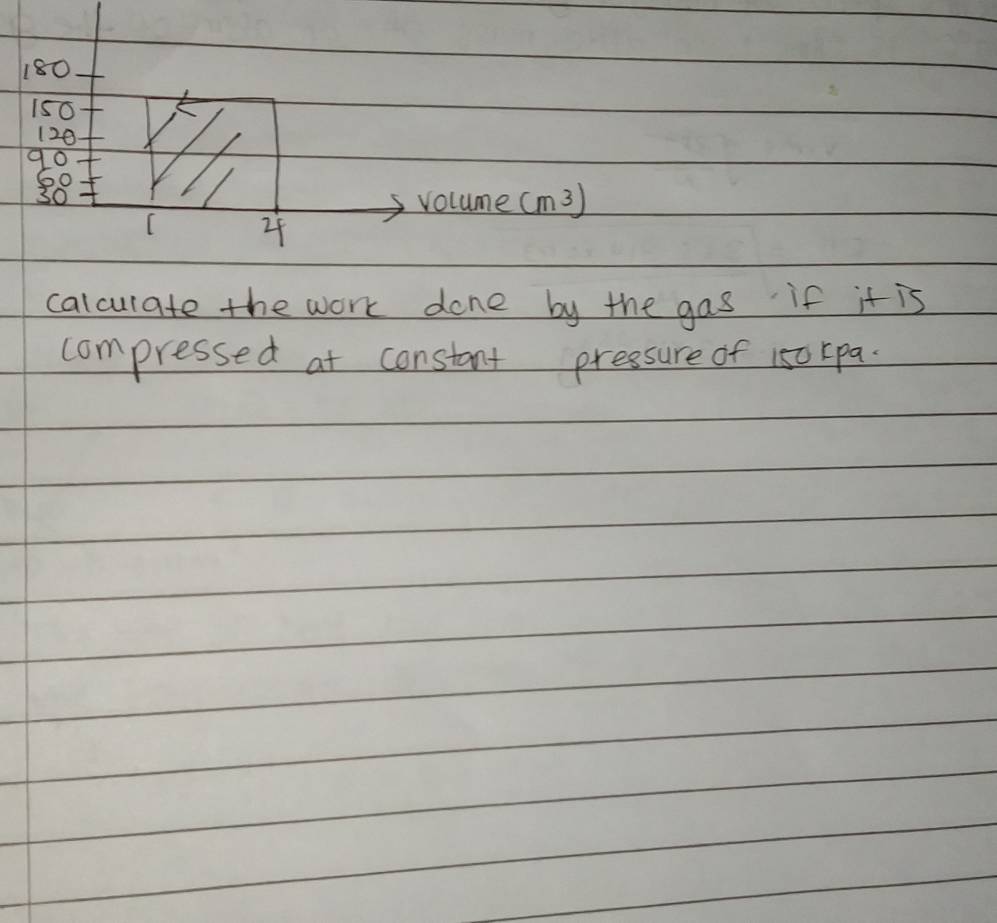 180
150
120
90
60
30
→ volume (m3)
1 4
calculate the work done by the gas if it is
compressed at constant pressure of 150 kpa.